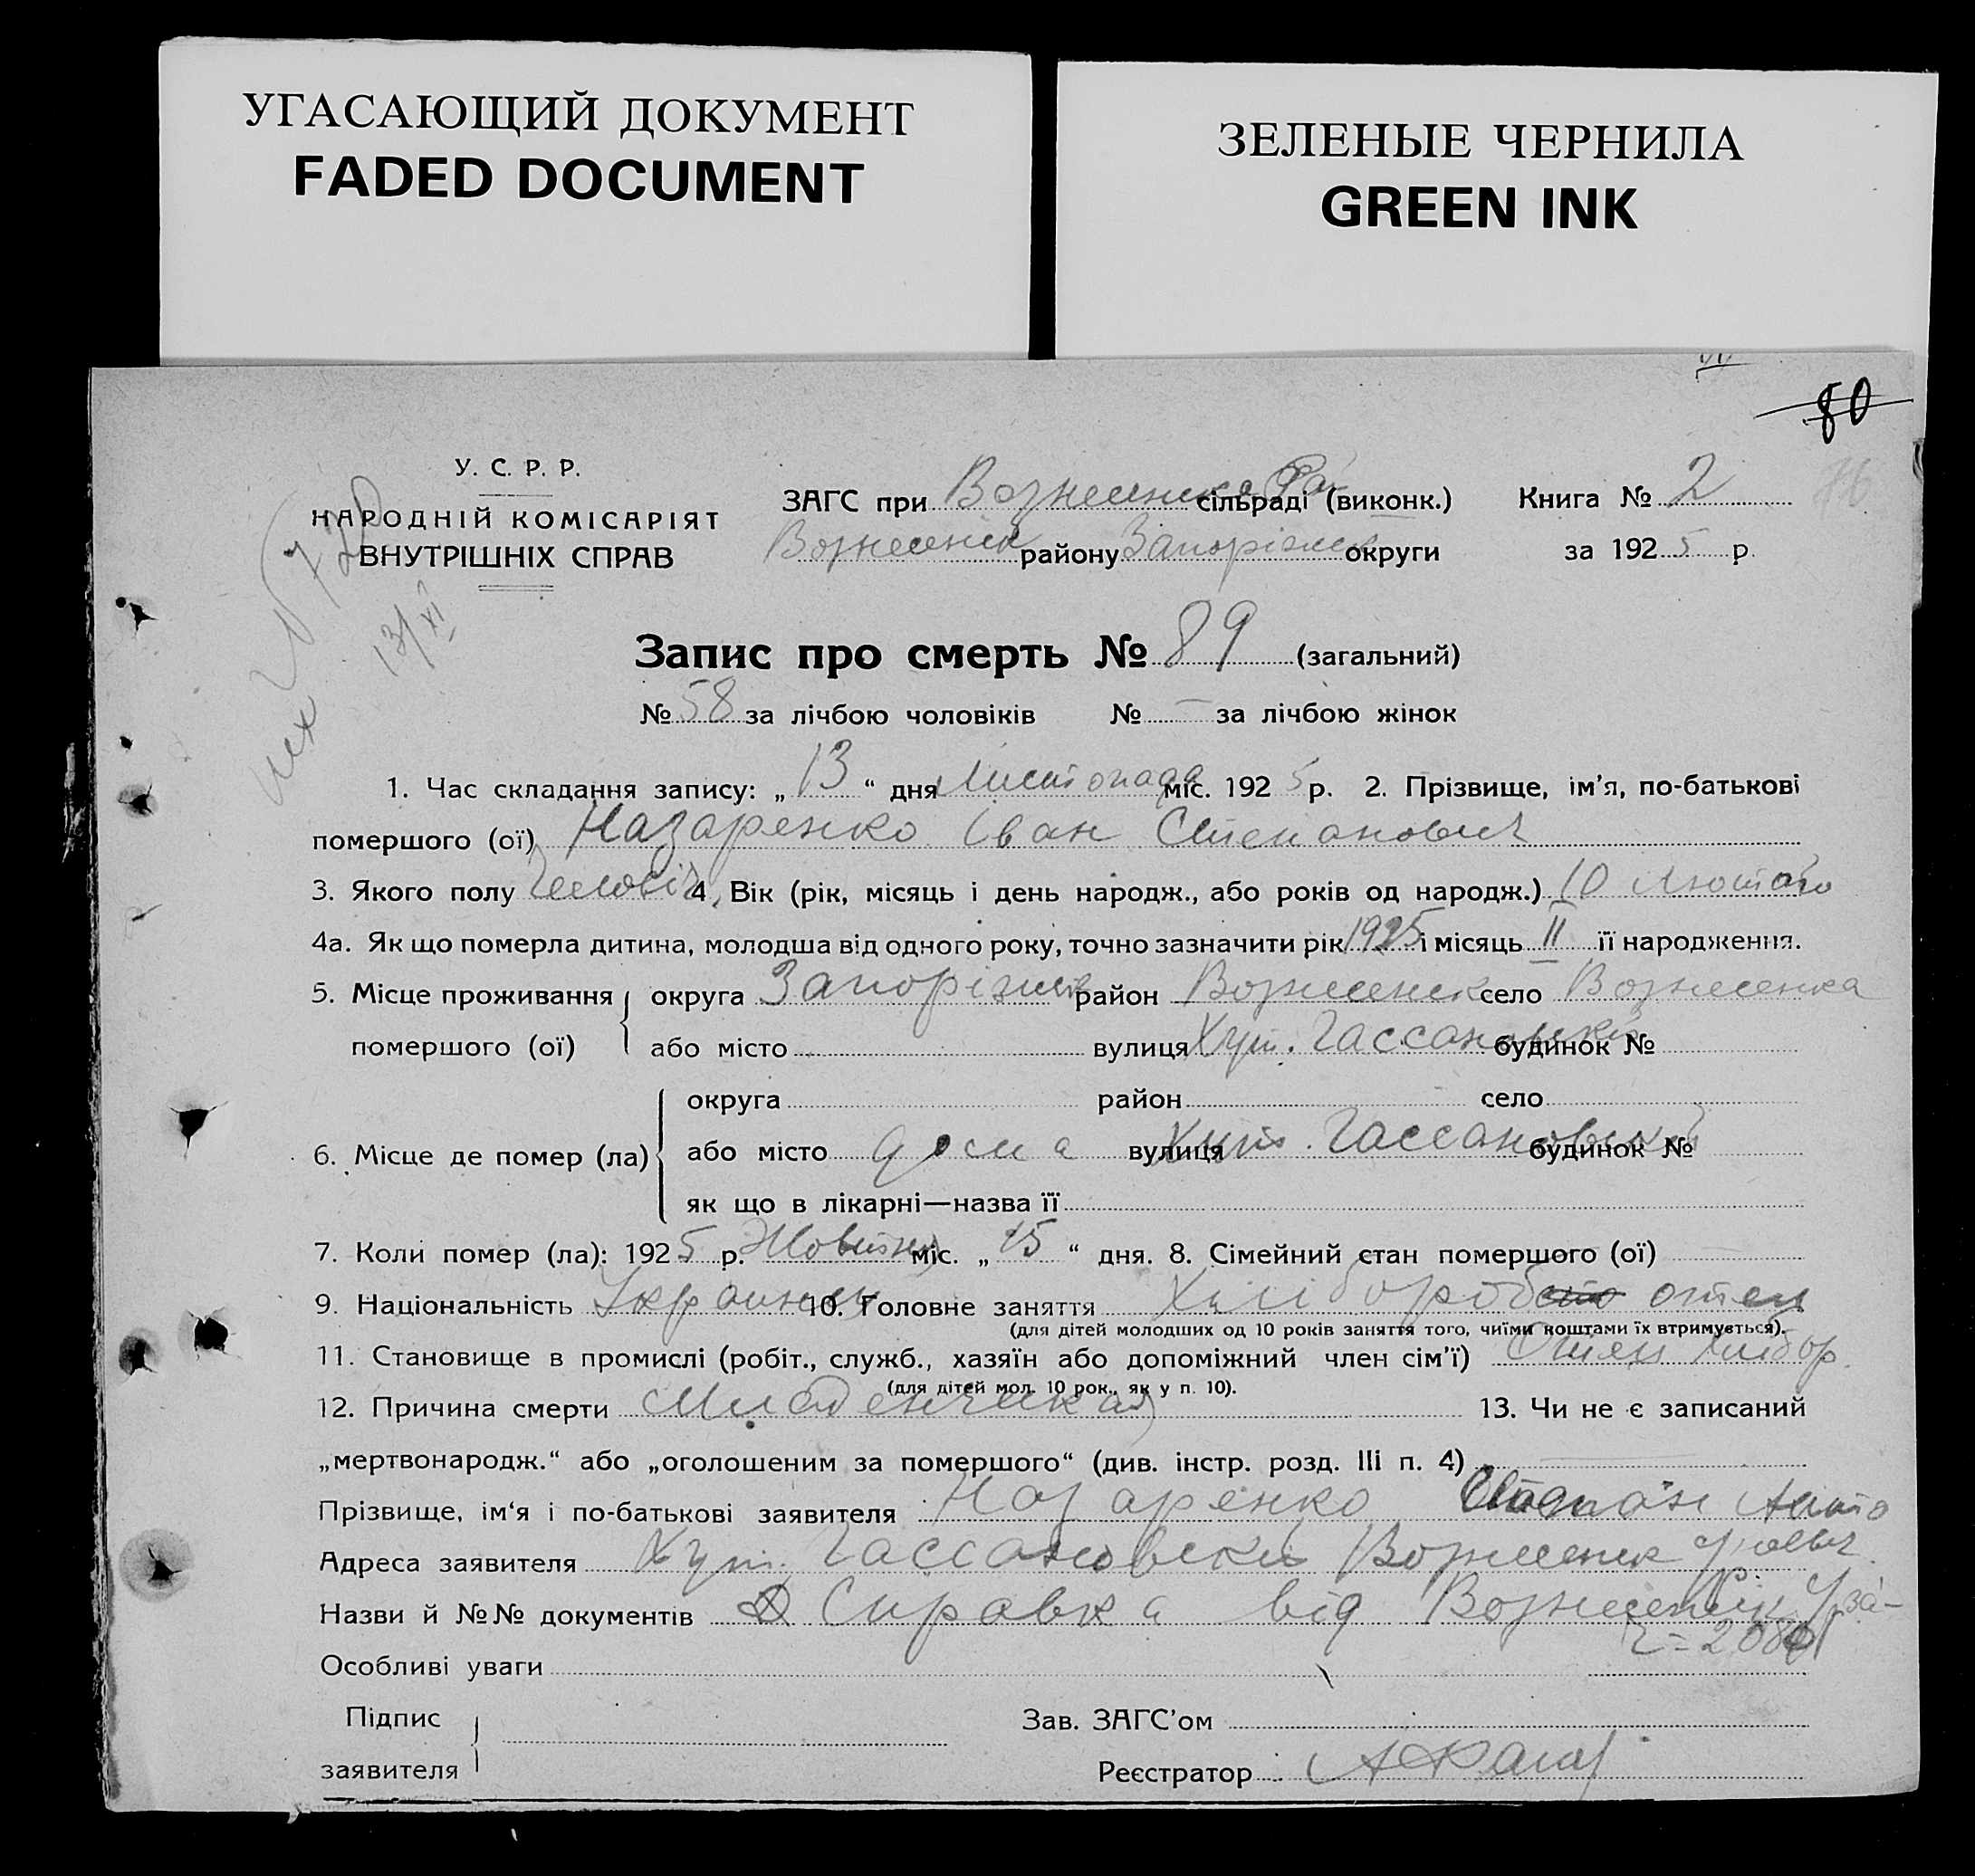 УГАСАЮЩИЙ ДОКУМЕНТ
FADED DOCUMENT
ЗЕЛЕНЫЕ ЧЕРНИЛА
GREEN INK
80
У. С. Р. Р.
НАРОДНІЙ КОМІСАРІЯТ
ВНУТРІШНІХ СПРАВ
13/XI
ЗАГС при Вознесенська Рай сільраді (виконк.) Книга № 2
Вознесенськ району Запоріжськ округи за 1925 р.
Запис про смерть № 89 (загальний)
№ 58 за лічбою чоловіків № — за лічбою жінок
1. Час складання запису: „ 13 “ дня Листопада міс. 1925 р. 2. Прізвище, ім'я, по-батькові
помершого (ої) Назаренко Іван Степанович
3. Якого полу Чоловіч 4. Вік (рік, місяць і день народж., або років од народж.) 10 Лютого
4а. Як що померла дитина, молодша від одного року, точно зазначити рік 1925 і місяць II її народження.
5. Місце проживання округа Запоріжськ район Вознесенськ село Вознесенка
помершого (ої) або місто вулиця Хут. Гассановский будинок №
округа район село
6. Місце де помер (ла) або місто дома вулиця Хут. Гассановский будинок №
як що в лікарні—назва її
7. Коли помер (ла): 1925 р. Жовтня міс. „ 15 “ дня. 8. Сімейний стан помершого (ої)
9. Національність Украинец 10. Головне заняття Хлібороб отец
(для дітей молодших од 10 років заняття того, чиїми коштами їх втримується).
11. Становище в промислі (робіт., служб., хазяїн або допоміжний член сім'ї) Отец хлібор.
(для дітей мол. 10 рок., як у п. 10).
12. Причина смерти Младенческая 13. Чи не є записаний
„мертвонародж.“ або „оголошеним за помершого“ (див. інстр. розд. III п. 4)
Прізвище, ім‘я і по-батькові заявителя Назаренко
Адреса заявителя Хут. Гассановский Вознесенск
Назви й №№ документів Справка від Вознесенськ
Особливі уваги
Підпис
заявителя
Зав. ЗАГС'ом
Реєстратор